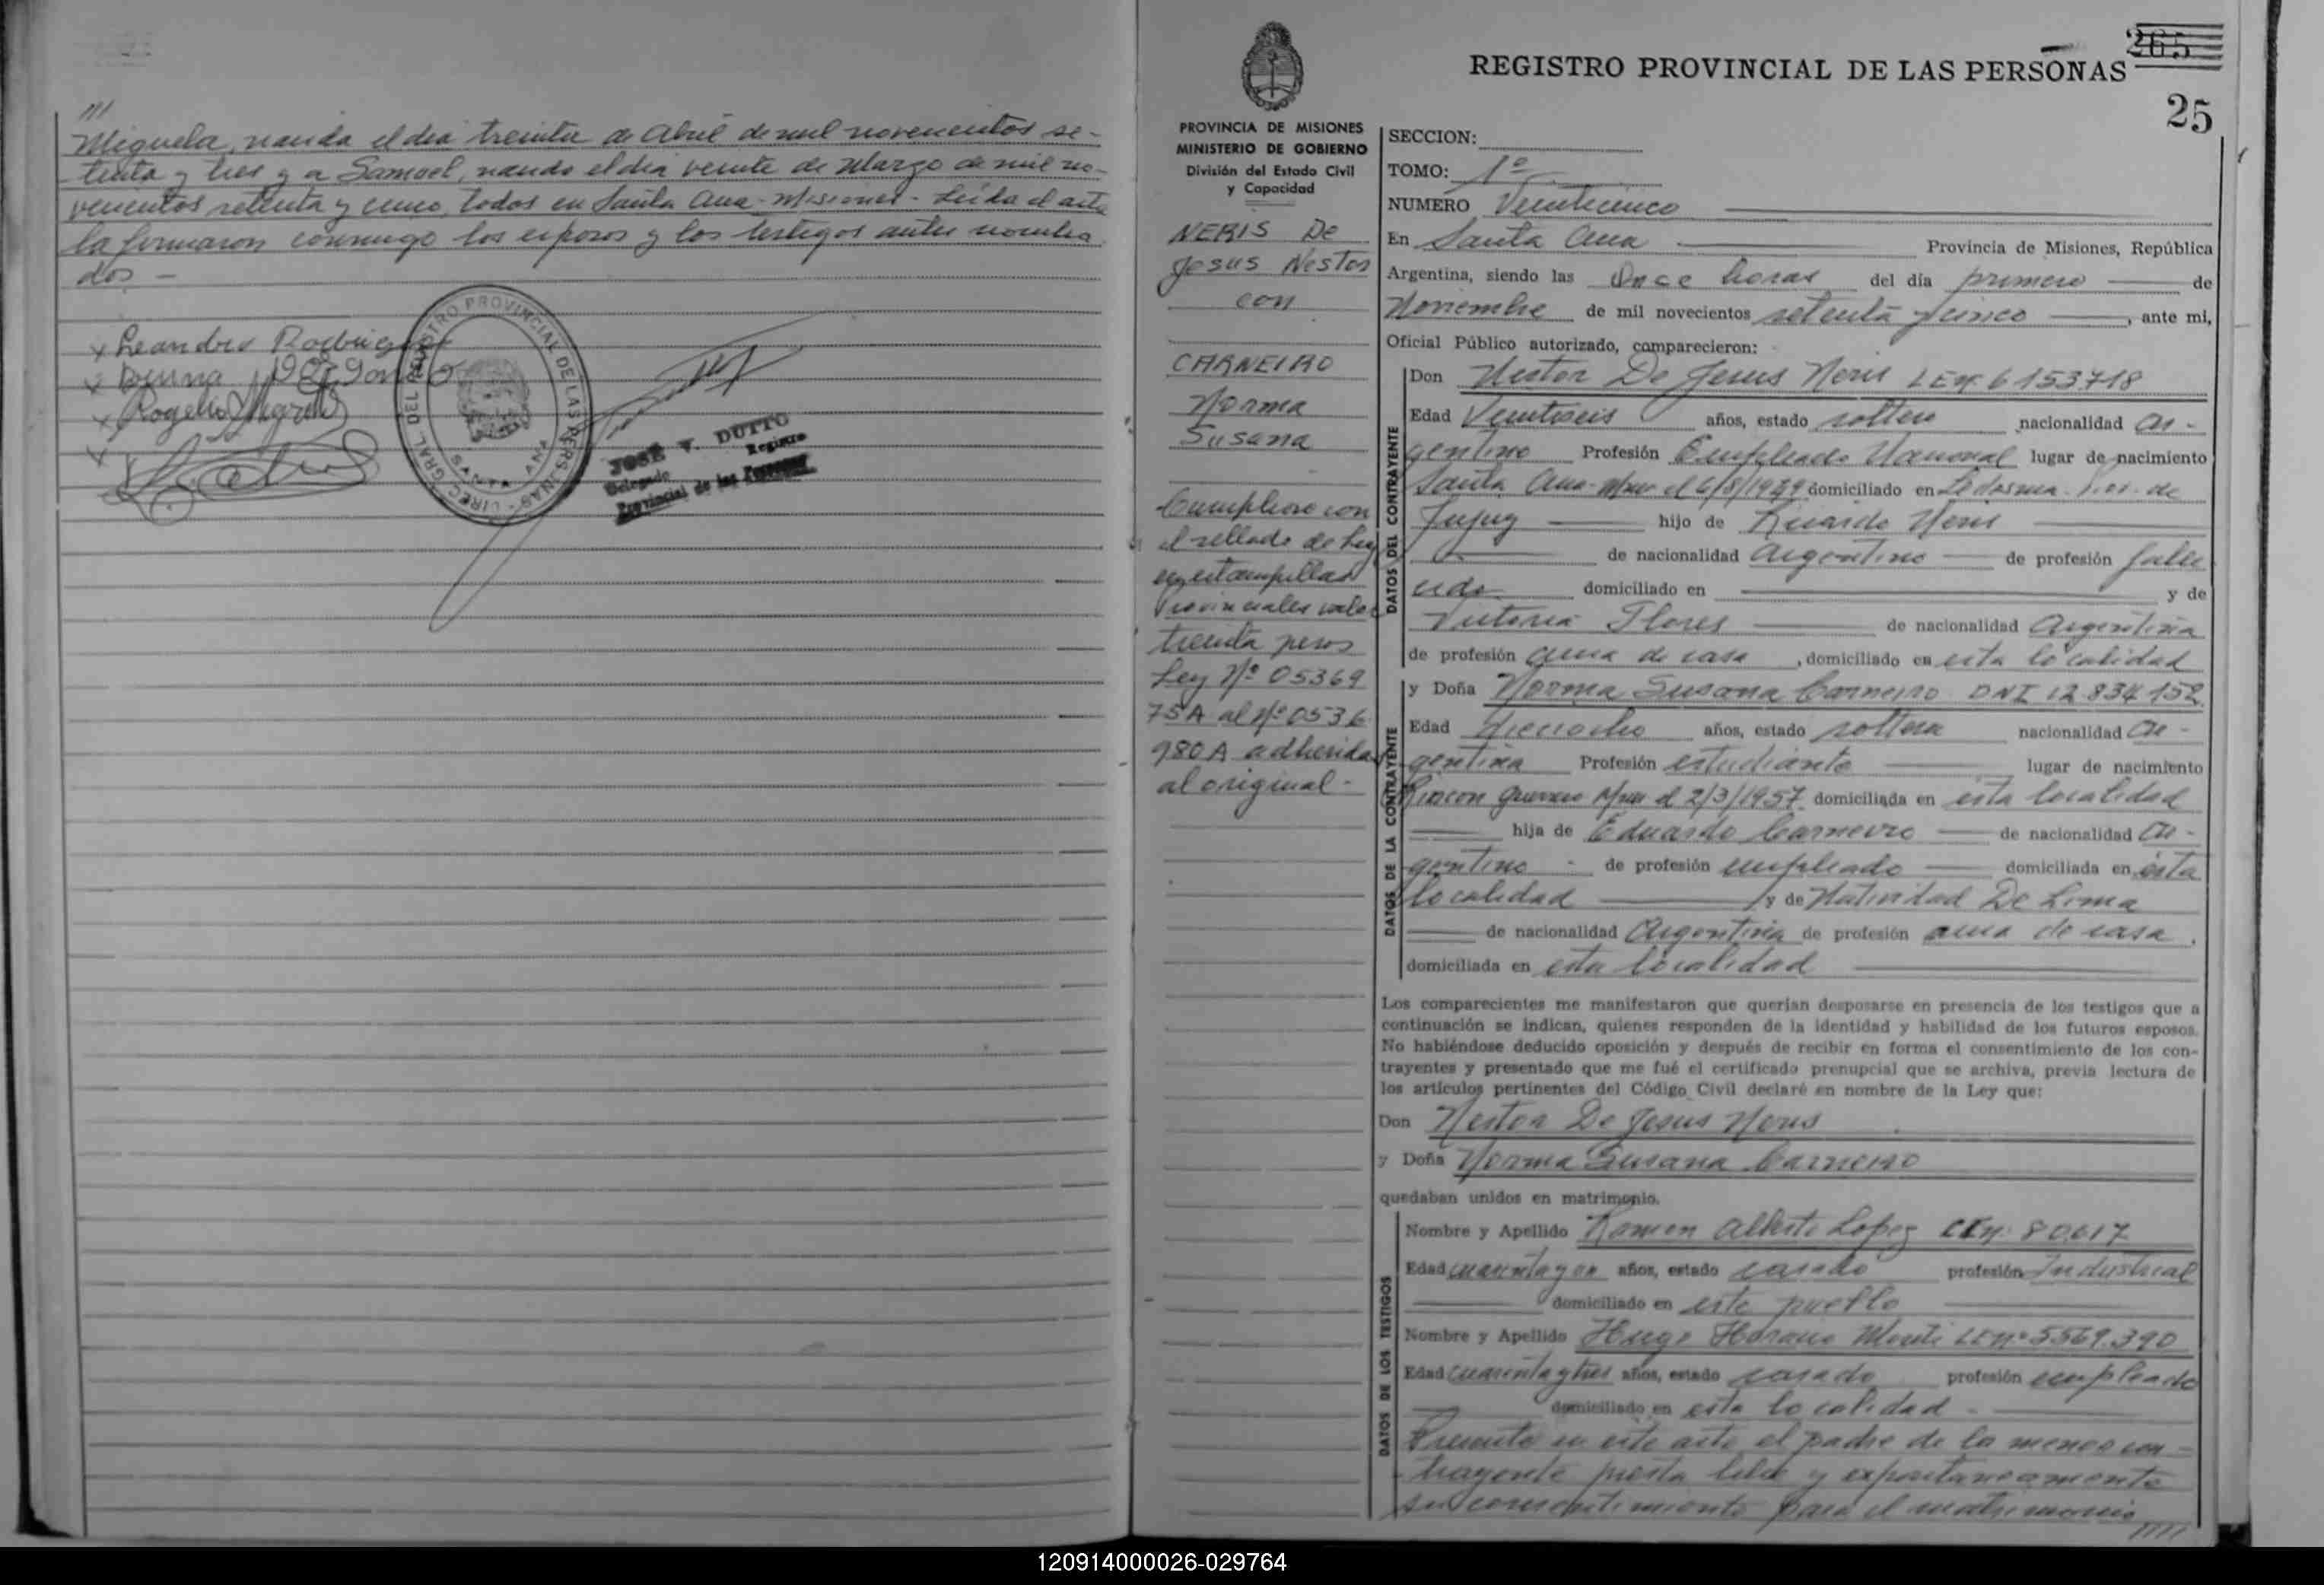 ///
Miguela, nacida el día treinta de Abril de mil novecientos se-
tenta y tres y a Samoel, nacido el día veinte de Marzo de mil no-
vecientos setenta y cinco, todos en Santa Ana - Misiones - Leída el acta
la firmaron conmigo los esposos y los testigos antes nombra
dos -
x Leandro Rodrigu
x
x Rogelio
x
DIREC. GRAL. DEL REGISTRO PROVINCIAL DE LAS PERSONAS
SANTA ANA
JOSE V. DUTTO
Delegado Registro
Provincial de las Personas
265
REGISTRO PROVINCIAL DE LAS PERSONAS
25
PROVINCIA DE MISIONES
MINISTERIO DE GOBIERNO
División del Estado Civil
y Capacidad
NERIS De
Jesus Nestor
con
CARNEIRO
Norma
Susana
Cumpliose con
el sellado de Ley
en estampillas
Provinciales valor
treinta pesos
Ley Nº 05369
75A al Nº 0536
980A adheridas
al original -
SECCION:
TOMO: 1º
NUMERO Veinticinco
En Santa Ana Provincia de Misiones, República
Argentina, siendo las Once horas del día primero de
Noviembre de mil novecientos setenta y cinco, ante mi,
Oficial Público autorizado, comparecieron:
DATOS DEL CONTRAYENTE
Don Nestor De Jesus Neris LENº 6153718
Edad Veintiseis años, estado soltero nacionalidad Ar-
gentino Profesión Empleado Nacional lugar de nacimiento
Santa Ana- Mnes el 6/8/1949 domiciliado en Ledesma Pcia. de
Jujuy hijo de Ricardo Neris
de nacionalidad Argentino de profesión falle
cido domiciliado en y de
Victoria Flores de nacionalidad Argentina
de profesión ama de casa, domiciliado en esta localidad
DATOS DE LA CONTRAYENTE
y Doña Norma Susana Carneiro DNI 12.834.152
Edad dieciocho años, estado soltera nacionalidad Ar-
gentina Profesión estudiante lugar de nacimiento
Rincon Mnes el 2/3/1957 domiciliada en esta localidad
hija de Eduardo Carneiro de nacionalidad Ar-
gentino - de profesión empleado domiciliada en ésta
localidad y de Natividad De Lima
de nacionalidad Argentina de profesión ama de casa,
domiciliada en esta localidad
Los comparecientes me manifestaron que querían desposarse en presencia de los testigos que a
continuación se indican, quienes responden de la identidad y habilidad de los futuros esposos.
No habiéndose deducido oposición y después de recibir en forma el consentimiento de los con-
trayentes y presentado que me fué el certificado prenupcial que se archiva, previa lectura de
los artículos pertinentes del Código Civil declaré en nombre de la Ley que:
Don Nestor De Jesus Neris
y Doña Norma Susana Carneiro
quedaban unidos en matrimonio.
DATOS DE LOS TESTIGOS
Nombre y Apellido Ramon Alberto Lopez CINº 80.617
Edad años, estado casado profesión Industrial
domiciliado en este pueblo
Nombre y Apellido Hugo Horacio LE nº 5569.390
Edad cuarenta y tres años, estado casado profesión empleado
domiciliado en esta localidad -
Presente en este acto el padre de la menor con-
trayente presta libre y expontaneamente
su consentimiento para el matrimonio
////
120914000026-029764